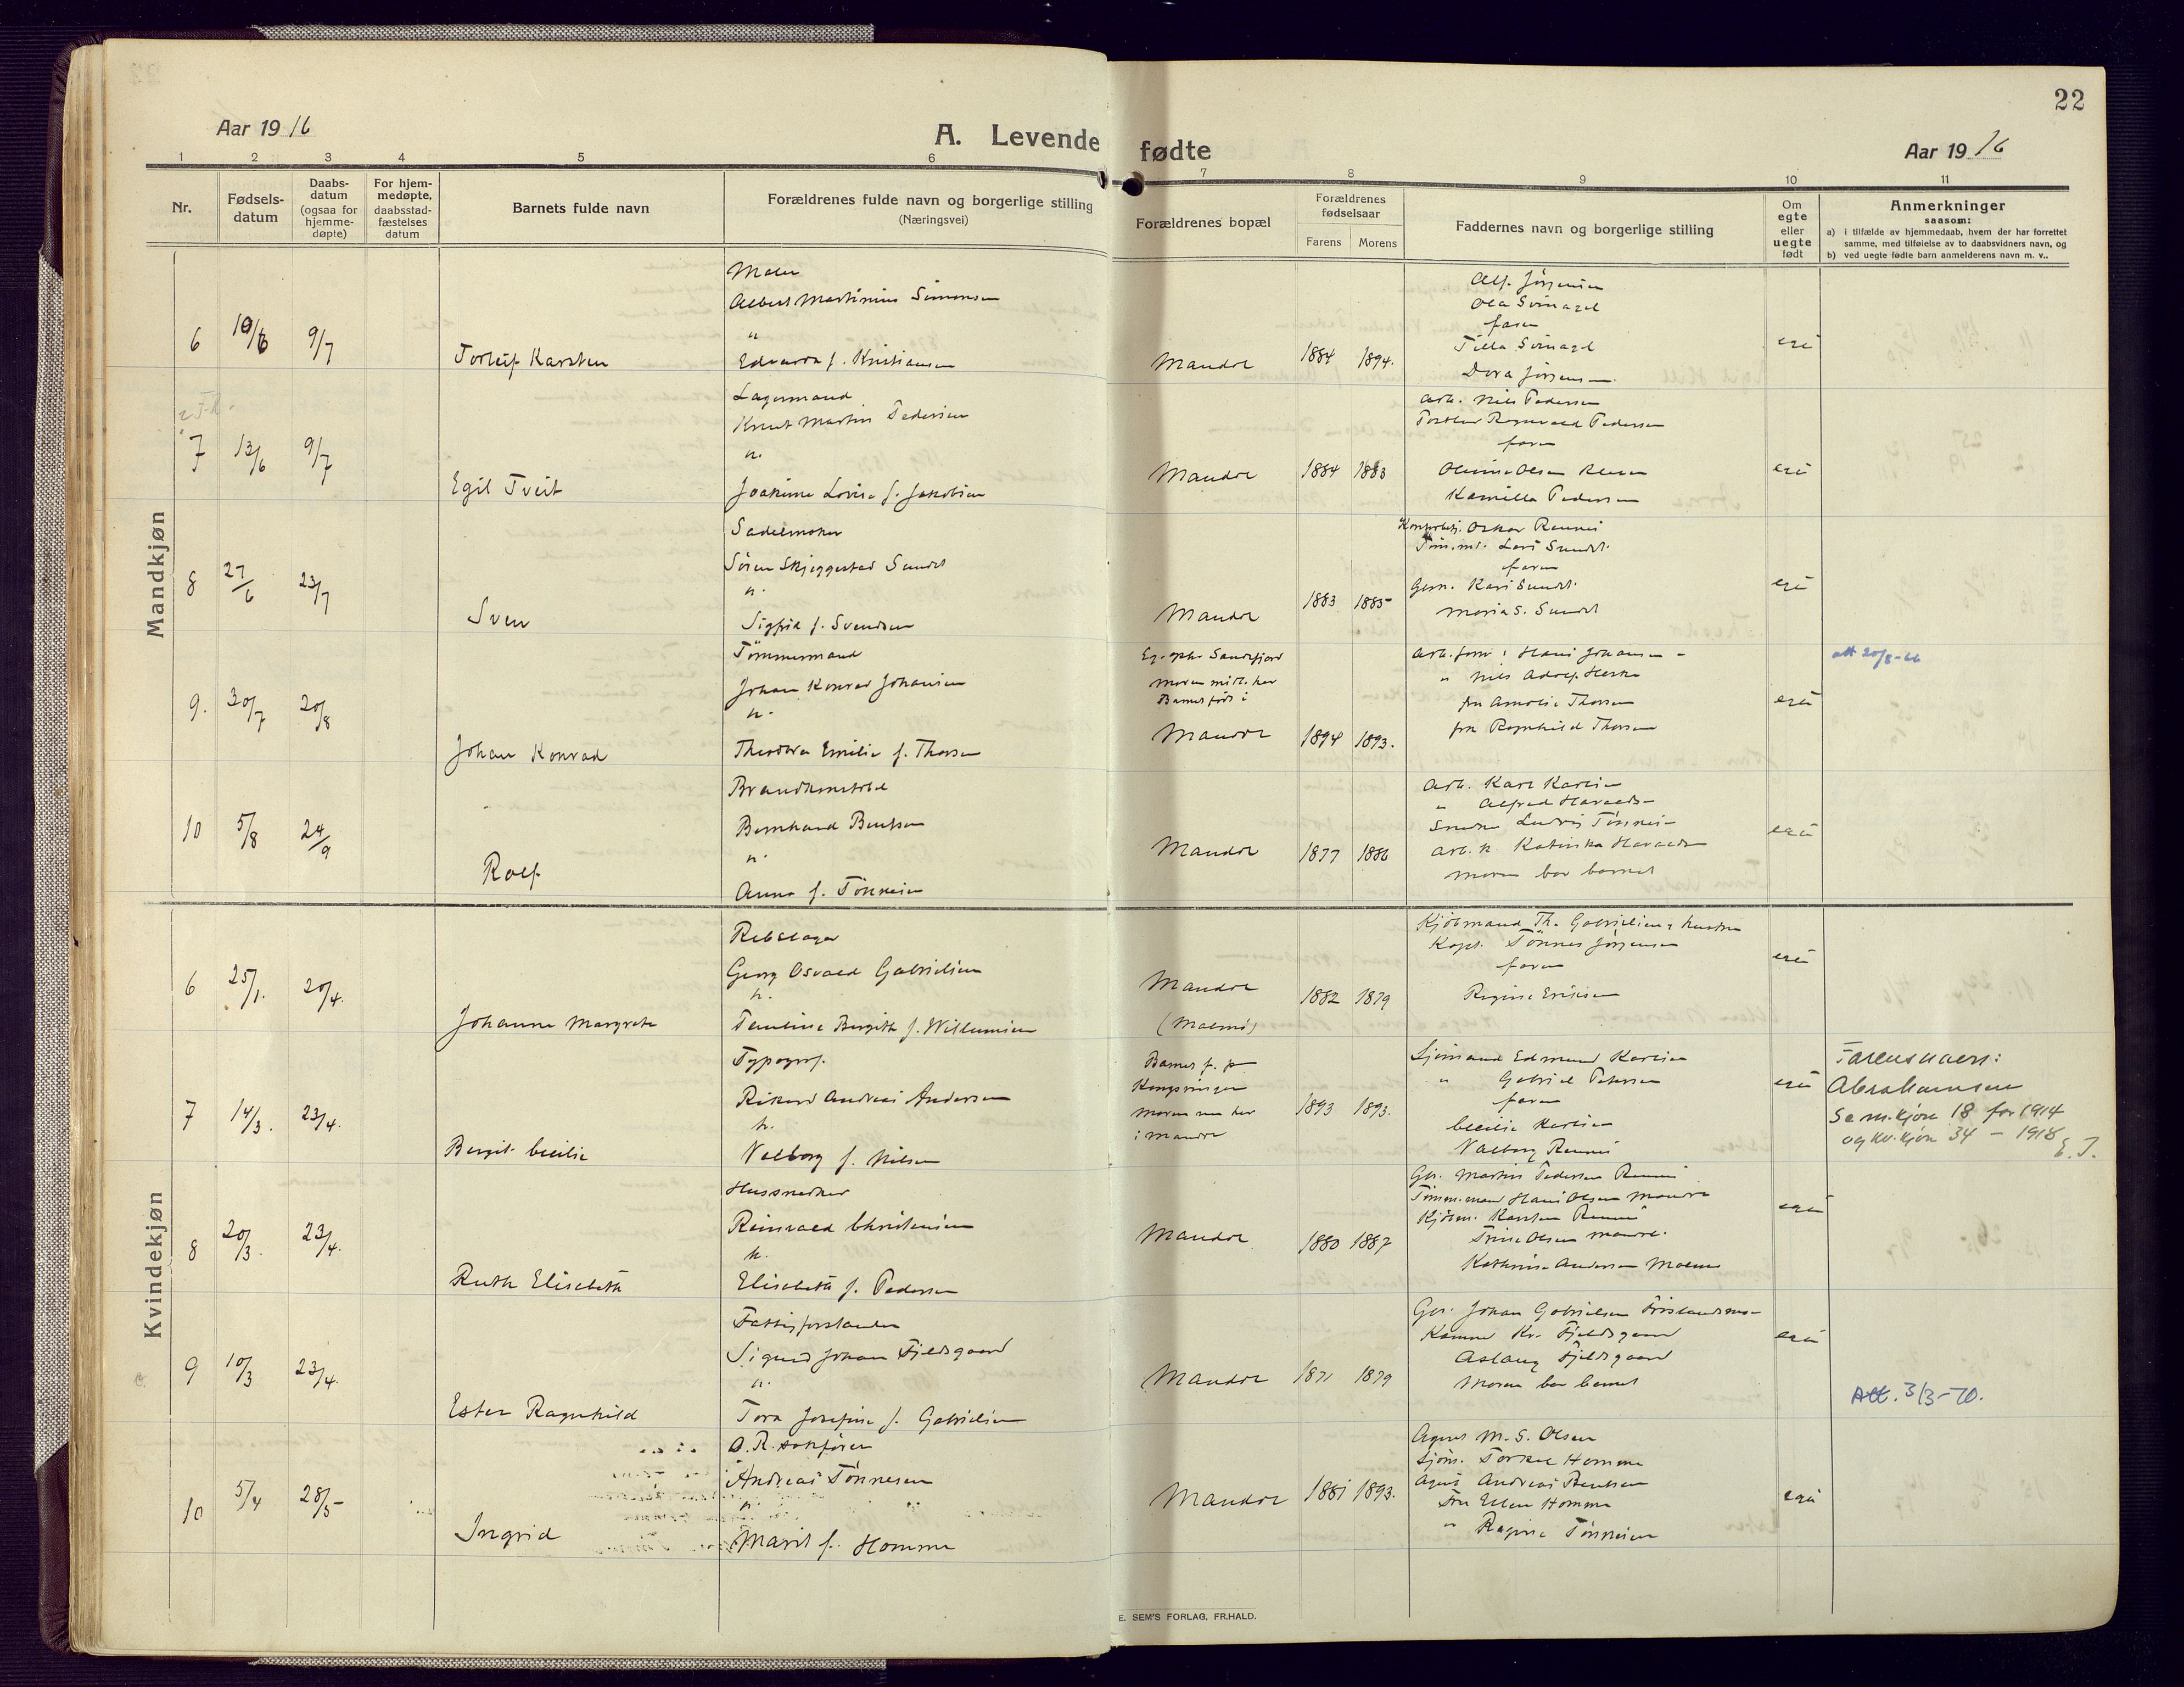 22
Aar 19 16
A. Levende fødte
Aar 19 16
1 2 3 4 5 6 7 8 9 10 11
Nr.
Fødsels-
datum
Daabs-
datum
(ogsaa for
hjemme-
døpte)
For hjem-
medøpte,
daabsstad-
fæstelses
datum
Barnets fulde navn
Forældrenes fulde navn og borgerlige stilling
(Næringsvei)
Forældrenes bopæl
Forældrenes
fødselsaar
Farens Morens
Faddernes navn og borgerlige stilling
Om
egte
eller
uegte
født
Anmerkninger
saasom:
a) i tilfælde av hjemmedaab, hvem der har forrettet
samme, med tilføielse av to daabsvidners navn, og
b) ved uegte fødte barn anmelderens navn m. v..
Mandkjøn
6 10/6 9/7
Torleif Karsten
Maler
Albert Martinius Simonsen
"
Edvarda f. Kristiansen
Mandal 1884 1894.
Alf. Jørgensen
Ola
faren
Dora Jørgensen
egte
7 13/6 9/7
Egil Tveit
Lagermand
Knut Martin Pedersen
h.
Joakime Lovise f. Jakobsen
Mandal 1884 1883
Arb. Nils Pedersen
Torleiv Ragnvald Pedersen
faren
Kamilla Pedersen
egte
8 27/6 23/7
Sven
Sadelmaker
Sören Skjeggestad Sundt
h.
Sigfrid f. Svendsen
Mandal 1883 1885
Oskar Rønnes
Lars Sundt.
faren
Kari Sundt.
Maria S. Sundt
egte
9. 30/7 20/8
Johan Konrad
Tömmermand
Johan Konrad Johansen
h.
Theodora Emilie f. Thorsen
Sandefjord
Moren midl. her
Barnet født i
Mandal 1894 1893.
Hans Johansen
" Nils Adolf
fru Amalie Thorsen
frk Ragnhild Thorsen
egte
att 20/8-66
10 5/8 24/9
Rolf
Brandkonstabel
Bernhard Bentsen
h.
Anna f. Tönnesen
Mandal 1877 1886
Arb. Karl Karlsen
" Alfred Haraldsen
Snedker Ludvig Tönnesen
Arb. h. Katinka Haraldsen
moren bar barnet
egte
Kvindekjøn
6 25/1. 20/4.
Johanne Margrete
Rebslager
Georg Osvald Gabrielsen
h.
Birgitte f. Willumsen
Mandal
(Malmö)
1882 1879
Kjöbmand Th. Gabrielsen & hustru
Kapt. Tönnes Jörgensen
faren
Regine Eriksen
egte
7 14/3. 23/4.
Bergit Cecilie
Typograf.
Rikard Andreas Andersen
h.
Valborg f. Nilsen
Barnet f. på
Kongsvinger
moren nu her
i Mandal
1893 1893.
Sjömand Edmund Karlsen
" Gabriel Petersen
faren
Cecilie Karlsen
Valborg Rönnes
egte
Farens navn:
Abrahamsen
Se m.kjøn 18 for 1914
og kv.kjøn 34 - 1918 E. J.
8 20/3. 23/4.
Ruth Elisabeth
Hussnedker
Reinvald Christensen
h.
Elisabeth f. Pedersen
Mandal 1880 1887
Martin Pedersen Rönnes
Tömm.mand Hans Olsen Mandal
Kjöbm. Karsten Rönnes
Trine Olsen Mandal.
Kathrine Andersen Malmö
egte
9 10/3 23/4.
Ester Ragnhild
Fattigforstander
Sigurd Johan Fjeldsgaard
h.
Tora Josefine f. Gabrielsen
Mandal 1871 1879
Johan Gabrielsen
Kr. Fjeldsgaard
Aslaug Fjeldsgaard
Moren bar barnet
egte
Att. 3/3-70.
10 5/4 28/5
Ingrid
O.R. sakförer
Andreas Tönnesen
h.
Marit f. Homme
Mandal 1881 1893.
Agent M. S. Olsen
Sjöm. Torkel Homme
Agent Andreas Bentsen
Fru Ellen Homme
" Regine Tönnesen
egte
E. SEM'S FORLAG, FR.HALD.